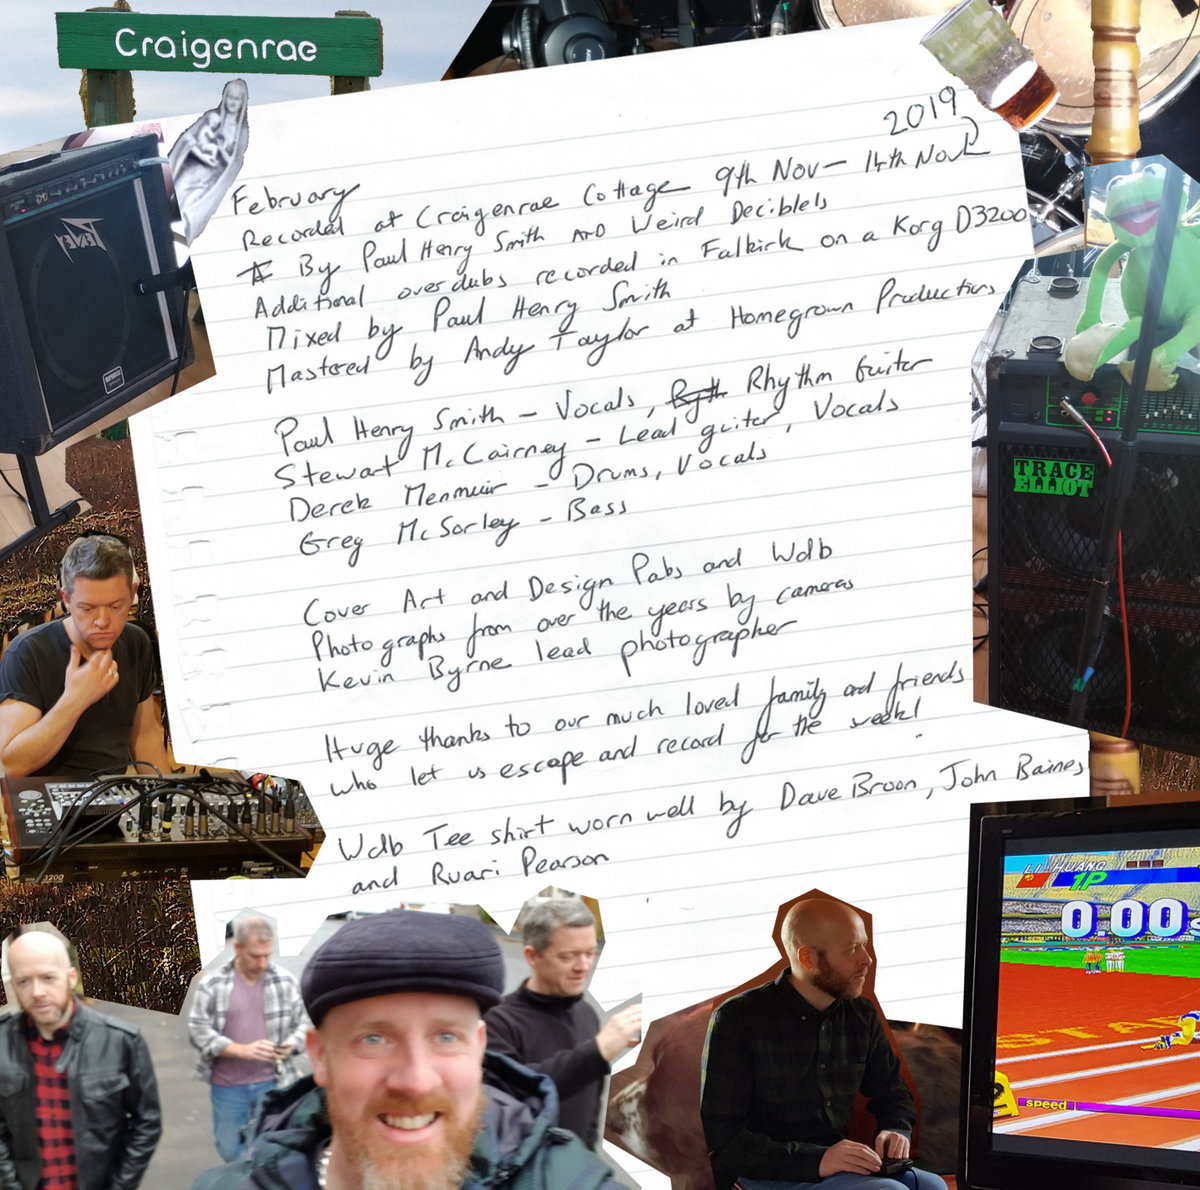 Craigenrae
2019
February
Recorded at Craigenrae Cottage 9th Nov - 14th Nov
By Paul Henry Smith AND Weird Decibels
Additional overdubs recorded in Falkirk on a Korg D3200
Mixed by Paul Henry Smith
Mastered by Andy Taylor at Homegrown Productions
Paul Henry Smith - Vocals, Rhythm Guiter
Stewart McCairney - Lead guiter, Vocals
Derek Menmuir - Drums, Vocals
Greg McSorley - Bass
Cover Art and Design Pabs and Wdb
Photographs from over the years by cameras
Kevin Byrne lead photographer
Huge thanks to our much loved family and friends
who let us escape and record for the week!
Wdb Tee shirt worn well by Dave Broon, John Baines
and Ruari Pearson
PEAVEY
TRACE
ELLIOT
3200
LI HUANG
1P
0.00s
STA
speed